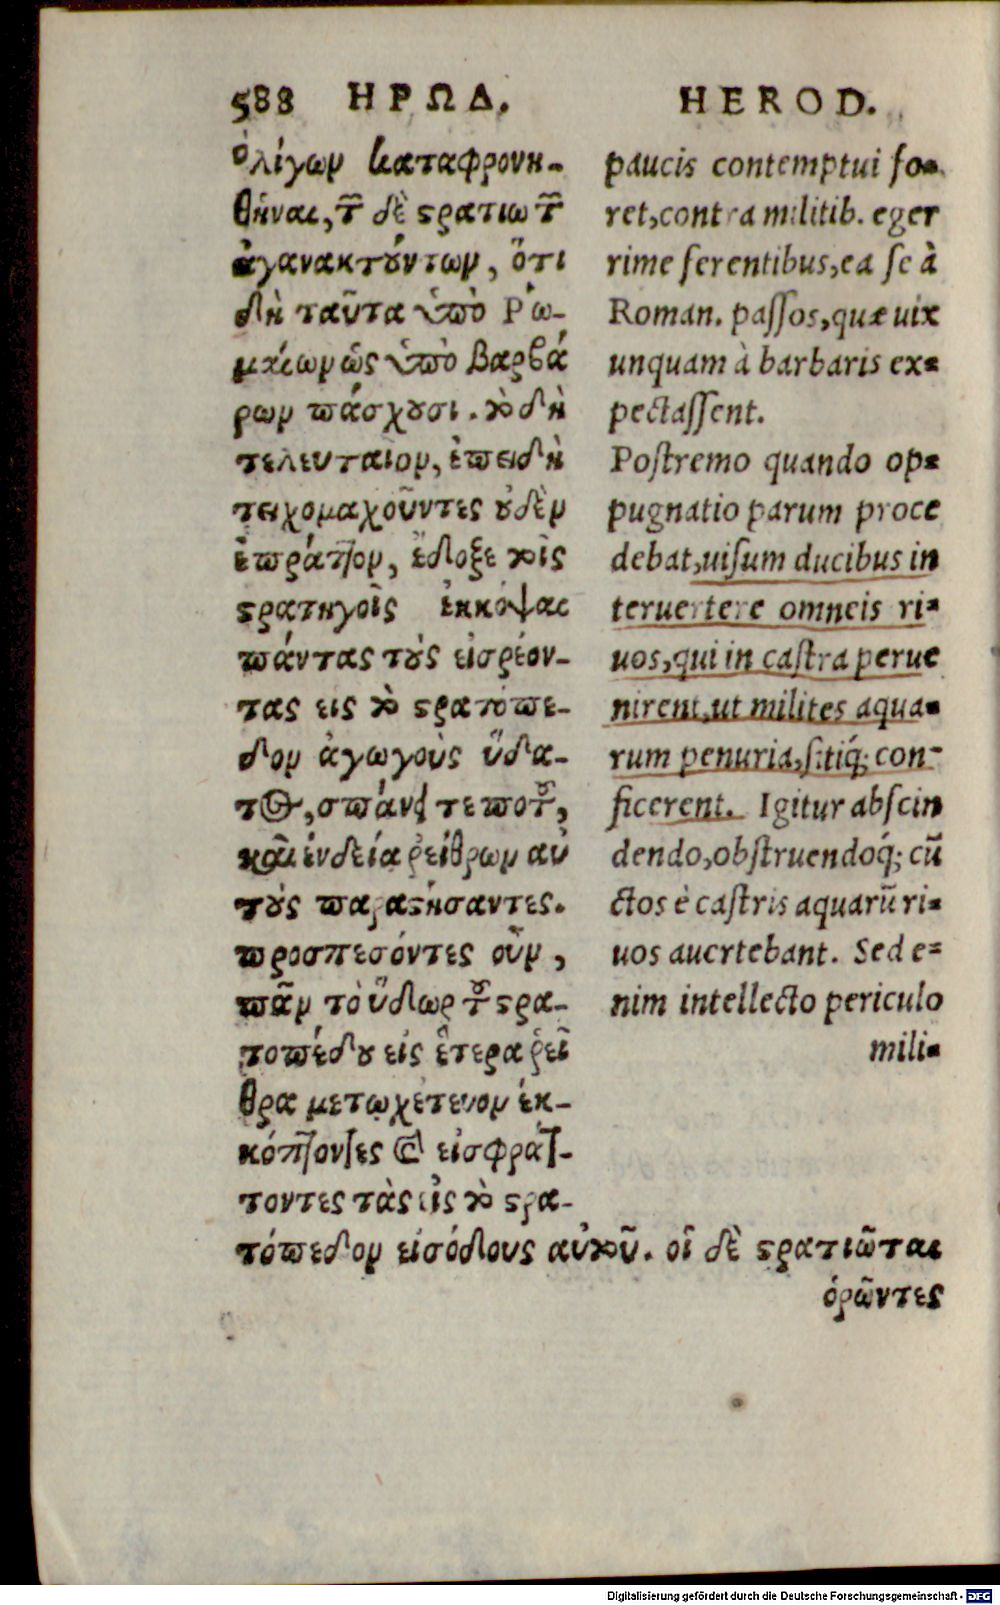 588 ΗΡΩΔ.
ὀλίγων καταφρονη-
θῆναι, τῶν δὲ στρατιωτῶν
ἀγανακτούντων, ὅτι
δὴ ταῦτα ὑπὸ Ρω-
μαίων ὡς ὑπὸ βαρβά
ρων πάσχουσι. τὸ δὴ
τελευταῖον, ἐπειδὴ
τειχομαχοῦντες οὐδὲν
ἔπραττον, ἔδοξε τοῖς
στρατηγοῖς ἐκκόψας
πάντας τοὺς εἰσρέον-
τας εις τὸ στρατόπε-
δον ἀγωγοὺς ὕδα-
τος, σπάνει τε ποτοῦ,
καὶ ἐνδεία ῥείθρων αὐ
τοὺς παραστήσαντες.
προσπεσόντες οὖν,
πᾶν τὸ ὕδωρ τοῦ στρα-
τοπέδου εἰς ἕτερα ῥεῖ
θρα μετωχέτευον ἐκ-
κόπτοντες καὶ εἰσφράτ-
τοντες τὰς εἰς τὸ στρα-
τόπεδον εἰσόδους αὐτοῦ. οἱ δὲ στρατιῶται
ὁρῶντες
HEROD.
paucis contemptui fo-
ret, contra militib. eger
rime ferentibus, ea se à
Roman. passos, quæ uix
unquam à barbaris ex-
pectassent.
Postremo quando op-
pugnatio parum proce
debat, uisum ducibus in
teruertere omneis ri-
uos, qui in castra perue
nirent, ut milites aqua-
rum penuria, sitiq́; con-
ficerent. Igitur abscin
dendo, obstruendoq́; cū
ctos è castris aquarū ri-
uos auertebant. Sed e-
nim intellecto periculo
mili-
Digitalisierung gefördert durch die Deutsche Forschungsgemeinschaft - DFG